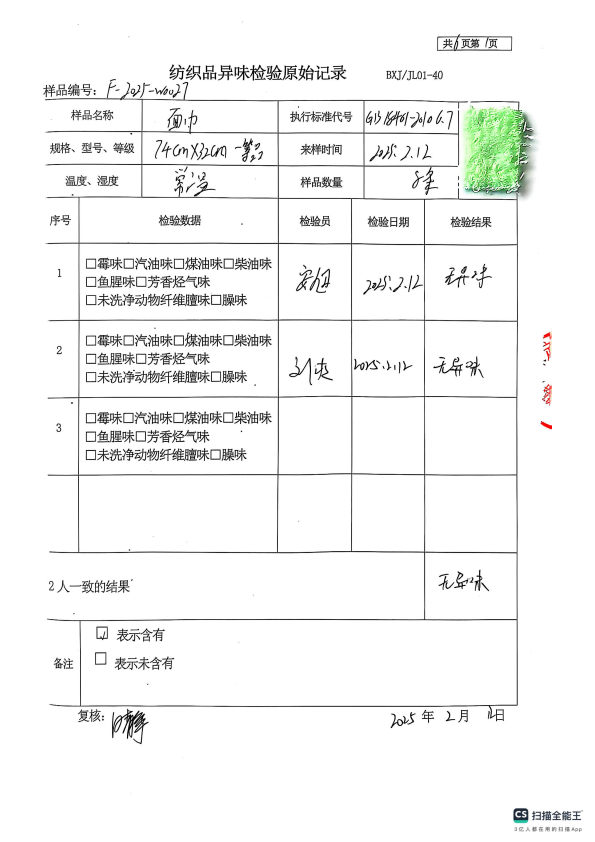 共6页第1页
纺织品异味检验原始记录 BXJ/JL01-40
样品编号：F-2025-W0027
样品名称 面巾 执行标准代号 GB 18401-2010 6.7
规格、型号、等级 74cm×32cm 一等品 来样时间 2025.2.12
温度、湿度 常温 样品数量 8条
序号 检验数据 检验员 检验日期 检验结果
1 □霉味□汽油味□煤油味□柴油味
□鱼腥味□芳香烃气味
□未洗净动物纤维膻味□臊味
2025.2.12 无异味
2 □霉味□汽油味□煤油味□柴油味
□鱼腥味□芳香烃气味
□未洗净动物纤维膻味□臊味
刘爽 2025.2.12 无异味
3 □霉味□汽油味□煤油味□柴油味
□鱼腥味□芳香烃气味
□未洗净动物纤维膻味□臊味
2人一致的结果 无异味
备注 ☑ 表示含有
□ 表示未含有
复核： 2025 年 2 月 12日
CS 扫描全能王
3亿人都在用的扫描App